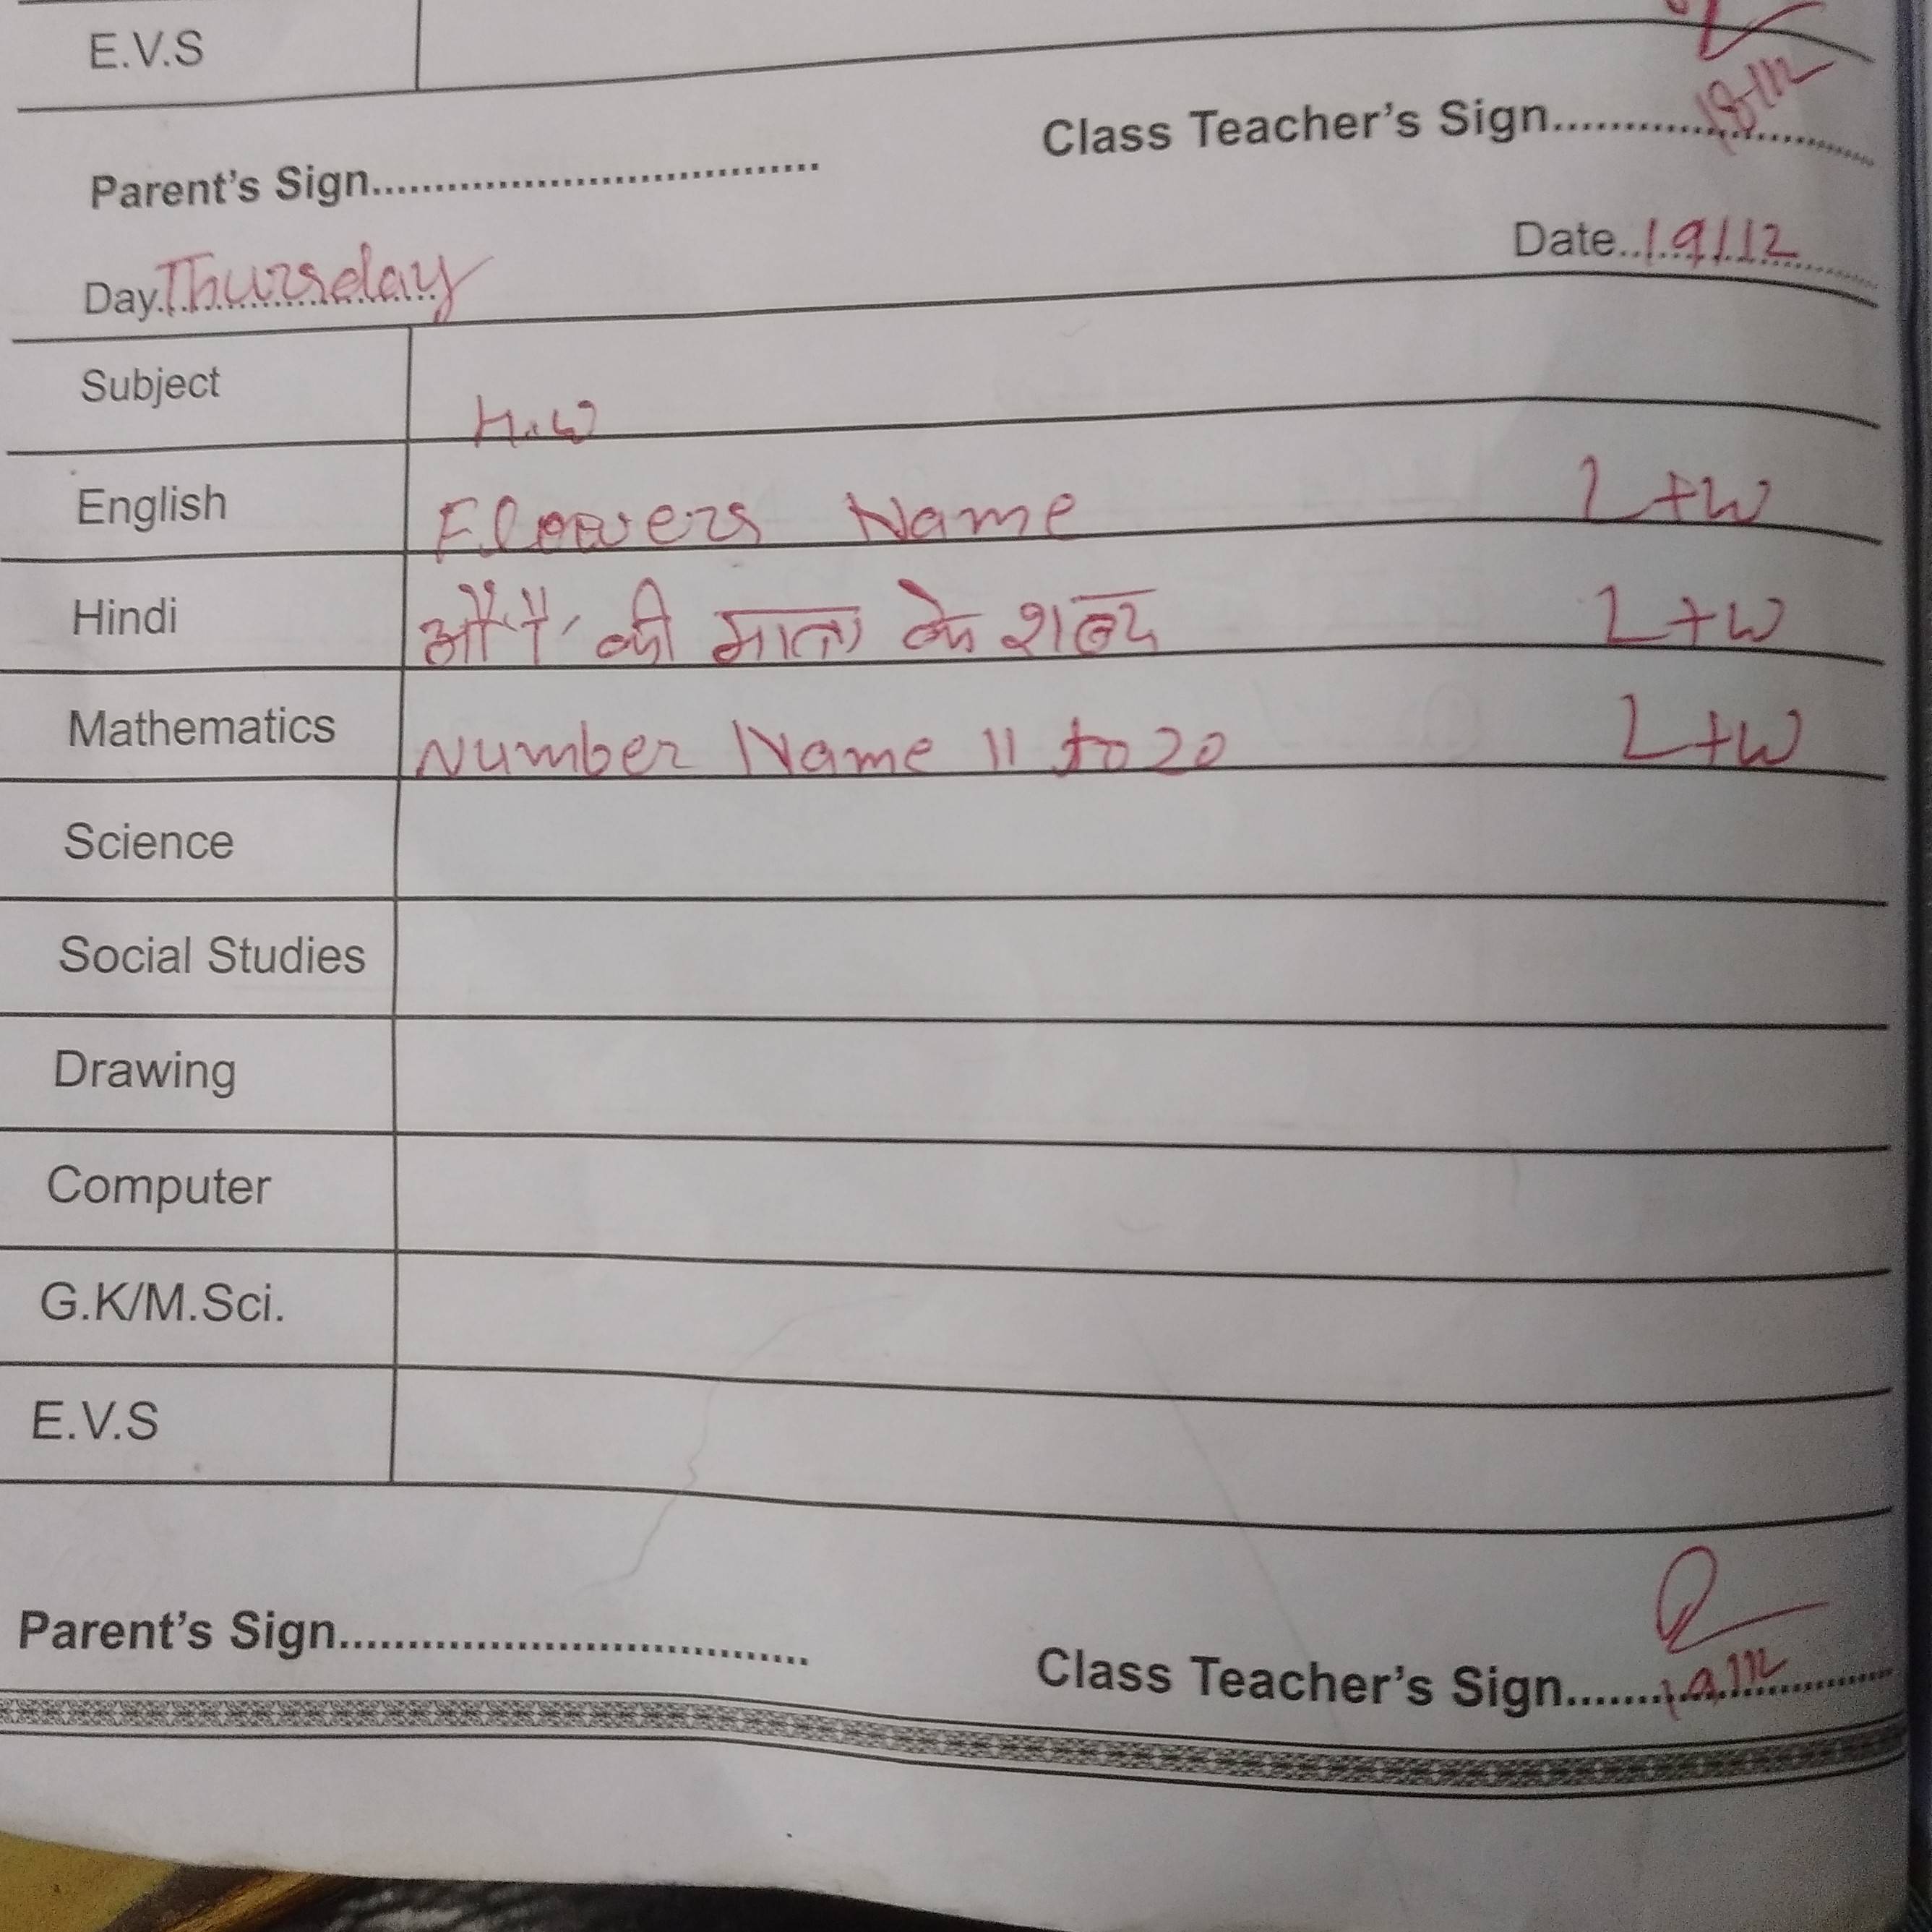 E.V.S
18/12
Parent's Sign.................................. Class Teacher's Sign..........................
Day Thursday Date 19/12
Subject H.W
English Flowers Name L+W
Hindi औ ै की मात्रा के शब्द L+W
Mathematics Number Name 11 to 20 L+W
Science
Social Studies
Drawing
Computer
G.K/M.Sci.
E.V.S
Parent's Sign.................................. Class Teacher's Sign..........................
19/12